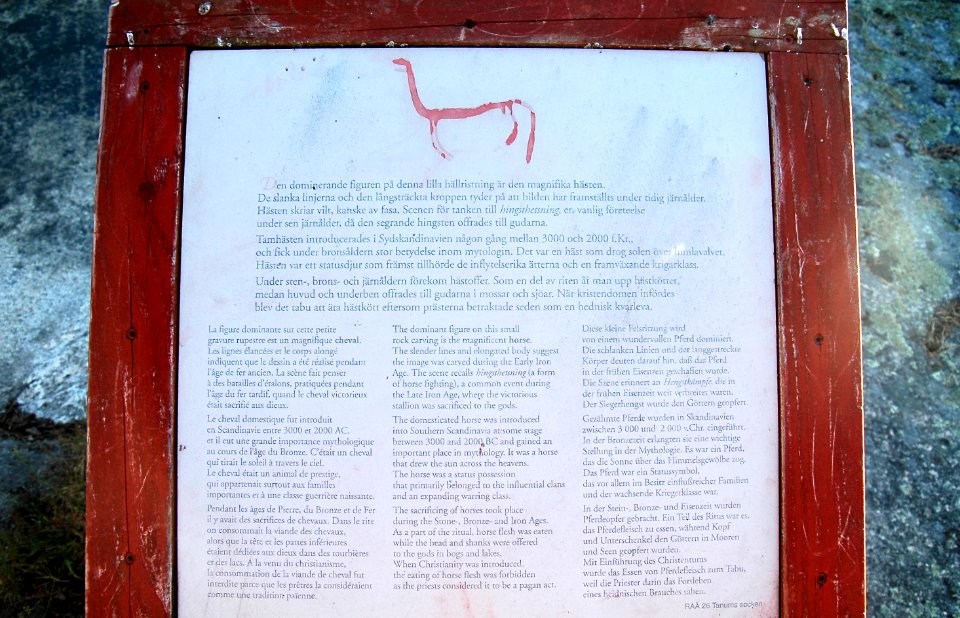 Den dominerande figuren på denna lilla hällristning är den magnifika hästen.
De slanka linjerna och den långsträckta kroppen tyder på att bilden har framställts under tidig järnålder.
Hästen skriar vilt, kanske av fasa. Scenen för tanken till hingsthetsning, en vanlig företeelse
under sen järnålder, då den segrande hingsten offrades till gudarna.
Tamhästen introducerades i Sydskandinavien någon gång mellan 3000 och 2000 f.Kr.,
och fick under bronsåldern stor betydelse inom mytologin. Det var en häst som drog solen över himlavalvet.
Hästen var ett statusdjur som främst tillhörde de inflytelserika ätterna och en framväxande krigarklass.
Under sten-, brons- och järnåldern förekom hästoffer. Som en del av riten åt man upp hästköttet,
medan huvud och underben offrades till gudarna i mossar och sjöar. När kristendomen infördes
blev det tabu att äta hästkött eftersom prästerna betraktade seden som en hednisk kvarleva.
La figure dominante sur cette petite
gravure rupestre est un magnifique cheval.
Les lignes élancées et le corps alongé
indiquent que le dessin a été réalisé pendant
l'âge de fer ancien. La scène fait penser
à des batailles d'étalons, pratiquées pendant
l'âge du fer tardif, quand le cheval victorieux
était sacrifié aux dieux.
Le cheval domestique fut introduit
en Scandinavie entre 3000 et 2000 AC,
et il eut une grande importance mythologique
au cours de l'âge du Bronze. C'était un cheval
qui tirait le soleil à travers le ciel.
Le cheval était un animal de prestige,
qui appartenait surtout aux familles
importantes et à une classe guerrière naissante.
Pendant les âges de Pierre, du Bronze et de Fer
il y avait des sacrifices de chevaux. Dans le rite
on consommait la viande des chevaux,
alors que la tête et les pattes inférieures
étaient dédiées aux dieux dans des tourbières
et des lacs. A la venu du christianisme,
la consommation de la viande de cheval fut
interdite parce que les prêtres la considéraient
comme une tradition païenne.
The dominant figure on this small
rock carving is the magnificent horse.
The slender lines and elongated body suggest
the image was carved during the Early Iron
Age. The scene recalls hingsthetsning (a form
of horse fighting), a common event during
the Late Iron Age, where the victorious
stallion was sacrificed to the gods.
The domesticated horse was introduced
into Southern Scandinavia at some stage
between 3000 and 2000 BC and gained an
important place in mythology. It was a horse
that drew the sun across the heavens.
The horse was a status possession
that primarily belonged to the influential clans
and an expanding warring class.
The sacrificing of horses took place
during the Stone-, Bronze- and Iron Ages.
As a part of the ritual, horse flesh was eaten
while the head and shanks were offered
to the gods in bogs and lakes.
When Christianity was introduced,
the eating of horse flesh was forbidden
as the priests considered it to be a pagan act.
Diese kleine Felsritzung wird
von einem wundervollen Pferd dominiert.
Die schlanken Linien und der langgestreckte
Körper deuten darauf hin, daß das Pferd
in der frühen Eisenzeit geschaffen wurde.
Die Szene erinnert an Hengstkämpfe, die in
der frühen Eisenzeit weit verbreitet waren.
Der Siegerhengst wurde den Göttern geopfert.
Gezähmte Pferde wurden in Skandinavien
zwischen 3 000 und 2 000 v.Chr. eingeführt.
In der Bronzezeit erlangten sie eine wichtige
Stellung in der Mythologie. Es war ein Pferd,
das die Sonne über das Himmelsgewölbe zog.
Das Pferd war ein Statussymbol,
das vor allem im Besitz einflußreicher Familien
und der wachsende Kriegerklasse war.
In der Stein-, Bronze- und Eisenzeit wurden
Pferdeopfer gebracht. Ein Teil des Ritus war es,
das Pferdefleisch zu essen, während Kopf
und Unterschenkel den Göttern in Mooren
und Seen geopfert wurden.
Mit Einführung des Christentums
wurde das Essen von Pferdefleisch zum Tabu,
weil die Priester darin das Fortleben
eines heidnischen Brauches sahen.
RAÄ 26 Tanums socken